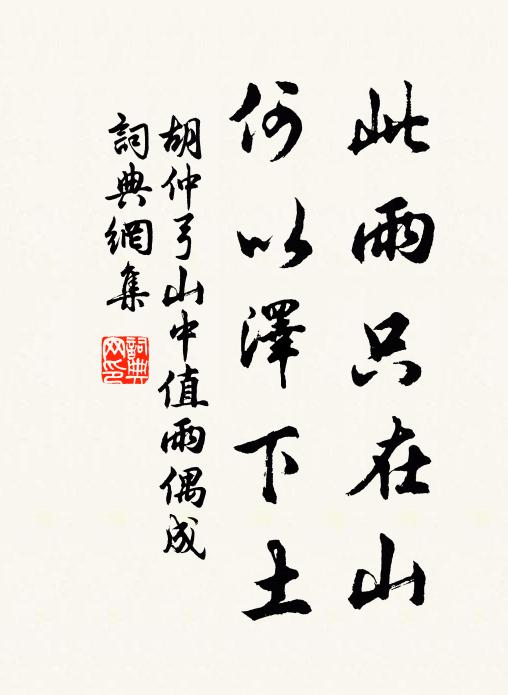 此雨只在山
何以澤下土
胡仲弓山中值雨偶成
詞典網集
詞典网印